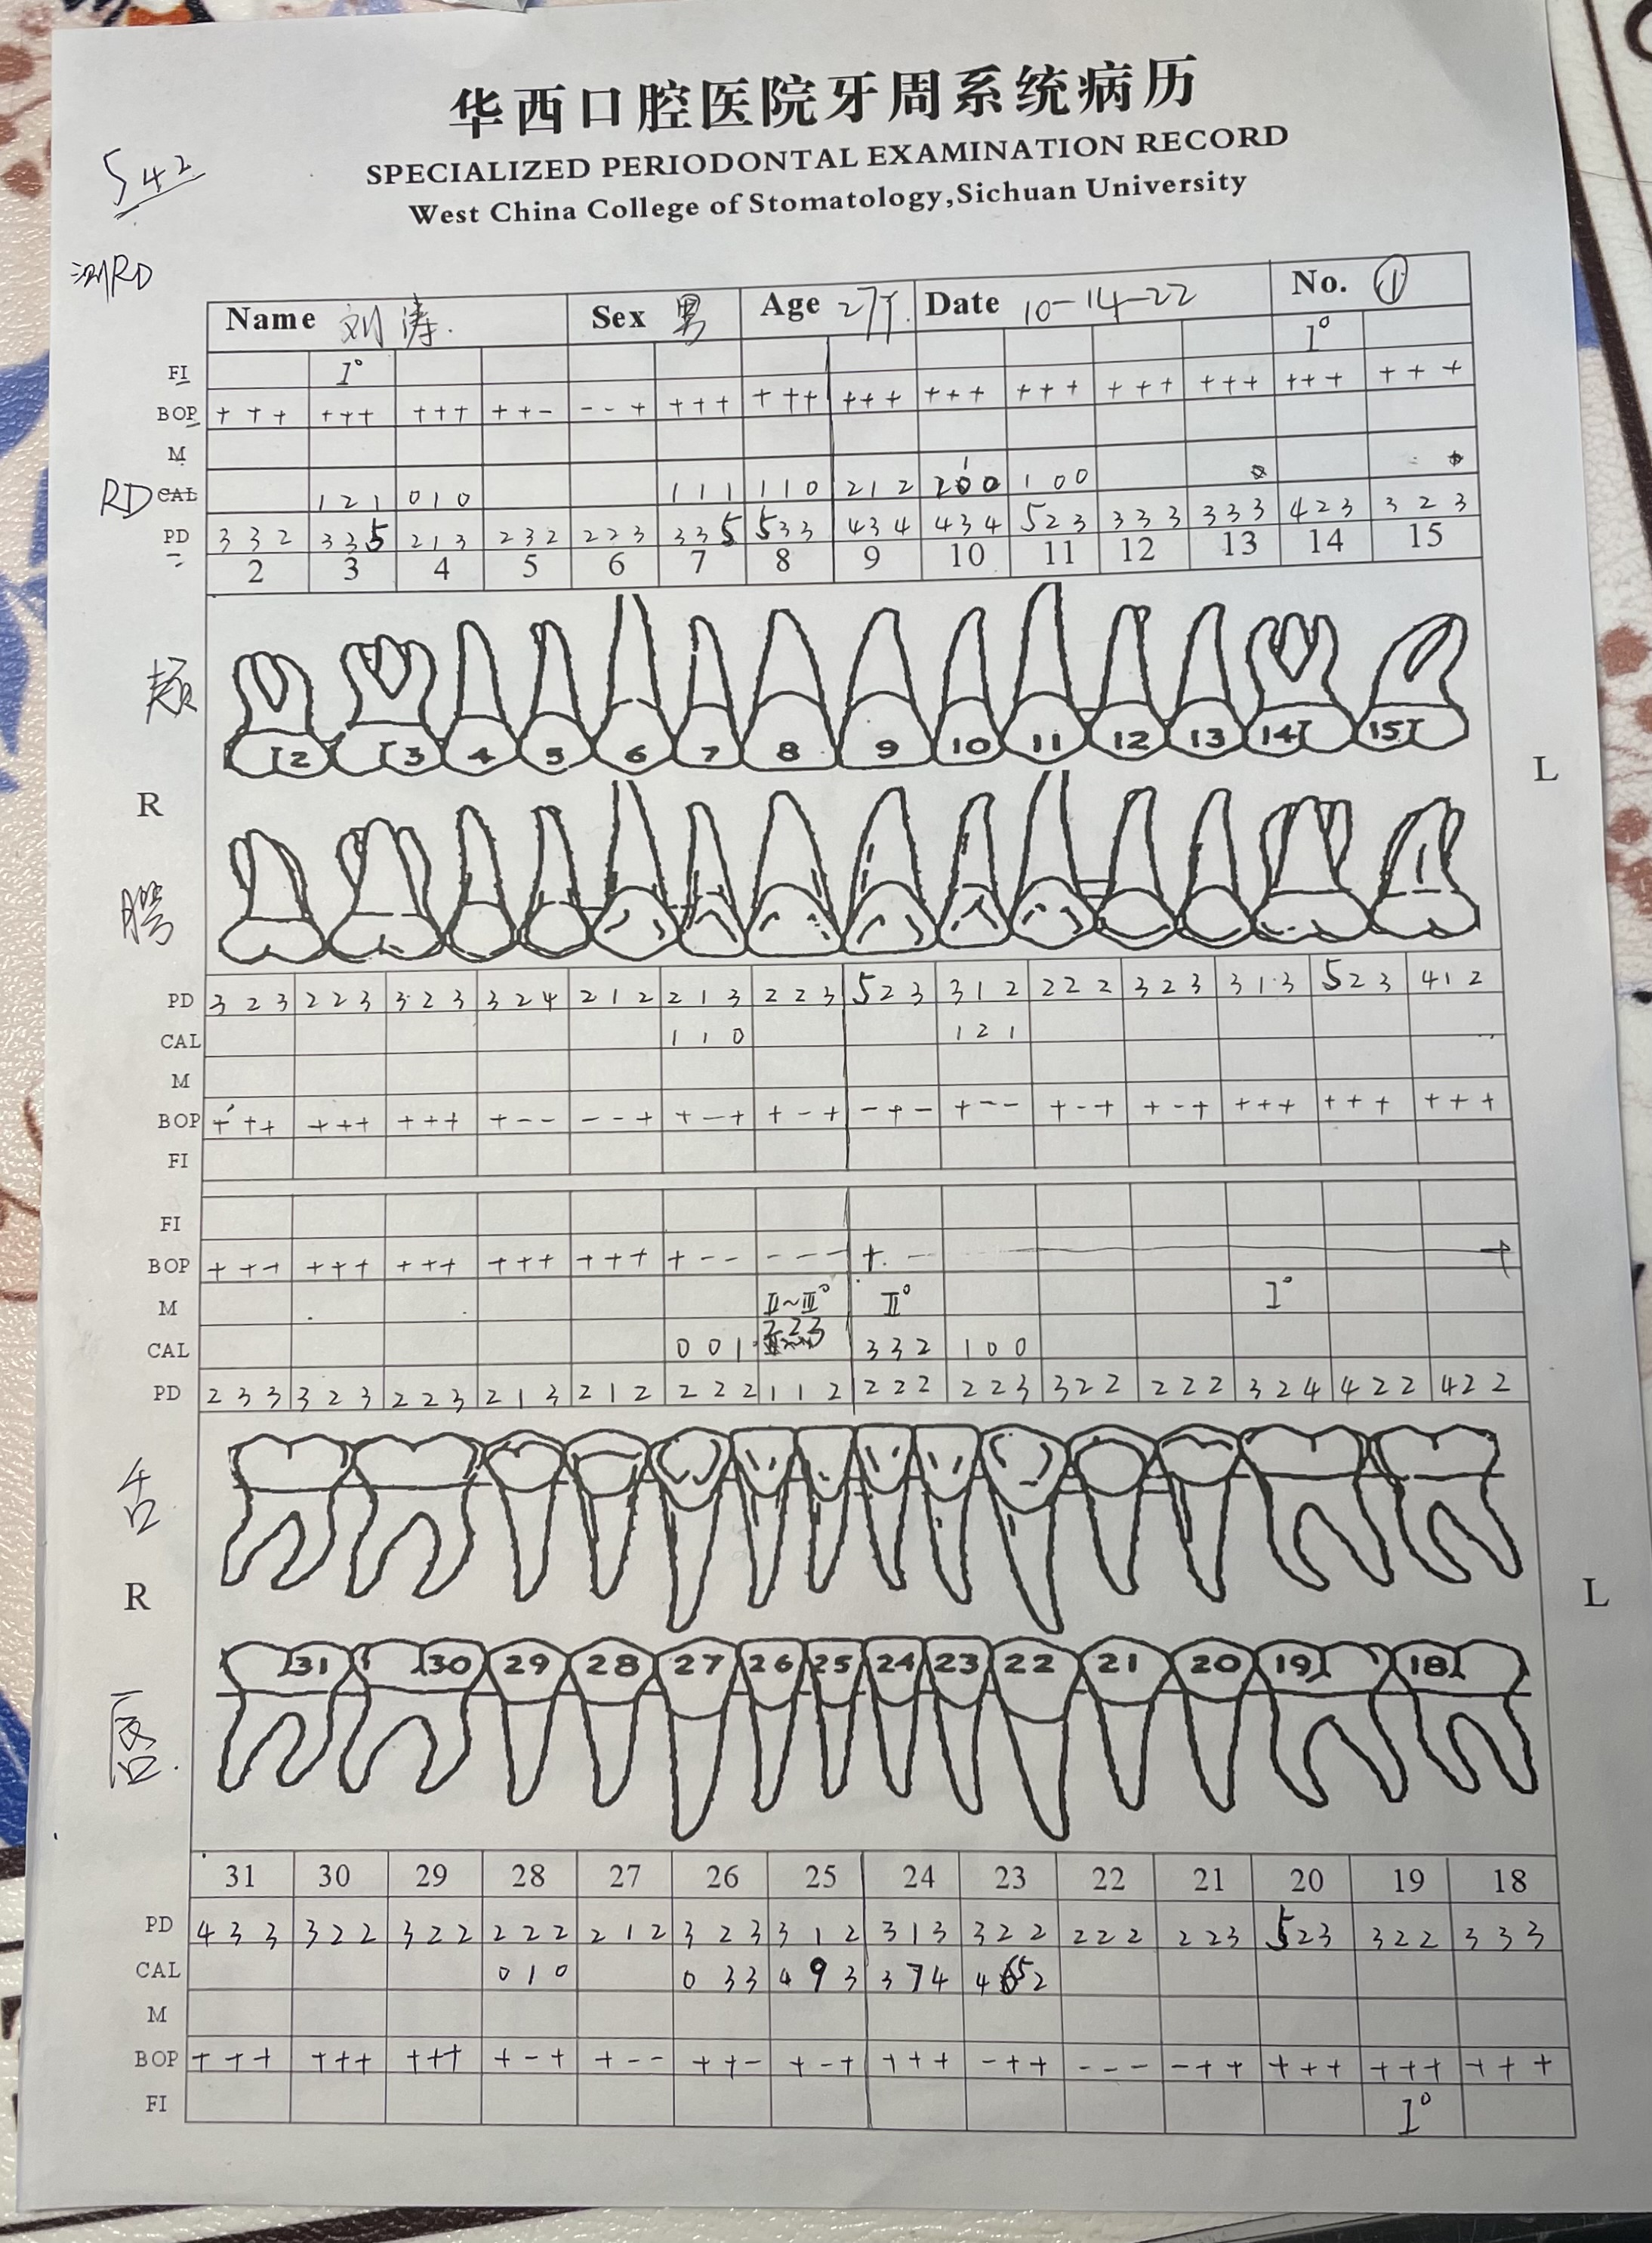 华西口腔医院牙周系统病历
SPECIALIZED PERIODONTAL EXAMINATION RECORD
West China College of Stomatology,Sichuan University
542
测RD
Name 刘涛. Sex 男 Age 27岁. Date 10-14-22 No. ①
FI I° I°
BOP + + + +++ +++ ++- --+ +++ +++ +++ +++ +++ +++ +++ +++ +++
M
RD CAL 121 010 111 110 212 100
PD 332 335 213 232 223 335 533 434 434 523 333 333 423 323
2 3 4 5 6 7 8 9 10 11 12 13 14 15
颊
2 3 4 5 6 7 8 9 10 11 12 13 14 15
R L
腭
PD 323 223 323 324 212 213 223 523 312 222 323 313 523 412
CAL 110 121
M
BOP +++ +++ +++ +-- --+ +-+ +-+ -+- +-- +-+ +-+ +++ +++ +++
FI
FI
BOP +++ +++ +++ +++ +++ +-- --- +. -
M II~III° II° I°
CAL 001 223 332 100
PD 233 323 223 213 212 222 112 222 223 322 222 324 422 422
舌
R L
31 30 29 28 27 26 25 24 23 22 21 20 19 18
唇.
31 30 29 28 27 26 25 24 23 22 21 20 19 18
PD 433 322 322 222 212 323 312 313 322 222 223 523 322 333
CAL 010 033 493 374 4 5 2
M
BOP +++ +++ +++ +-+ +-- ++- +-+ +++ -++ --- -++ +++ +++ +++
FI I°